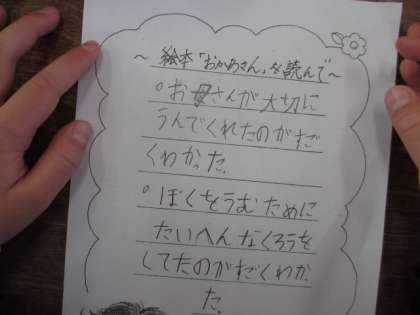 ～絵本「おかあさん」を読んで～
○お母さんが大切に
うんでくれたのがすご
くわかった。
○ぼくをうむために
たいへんなくろうを
してたのがすごくわかっ
た。